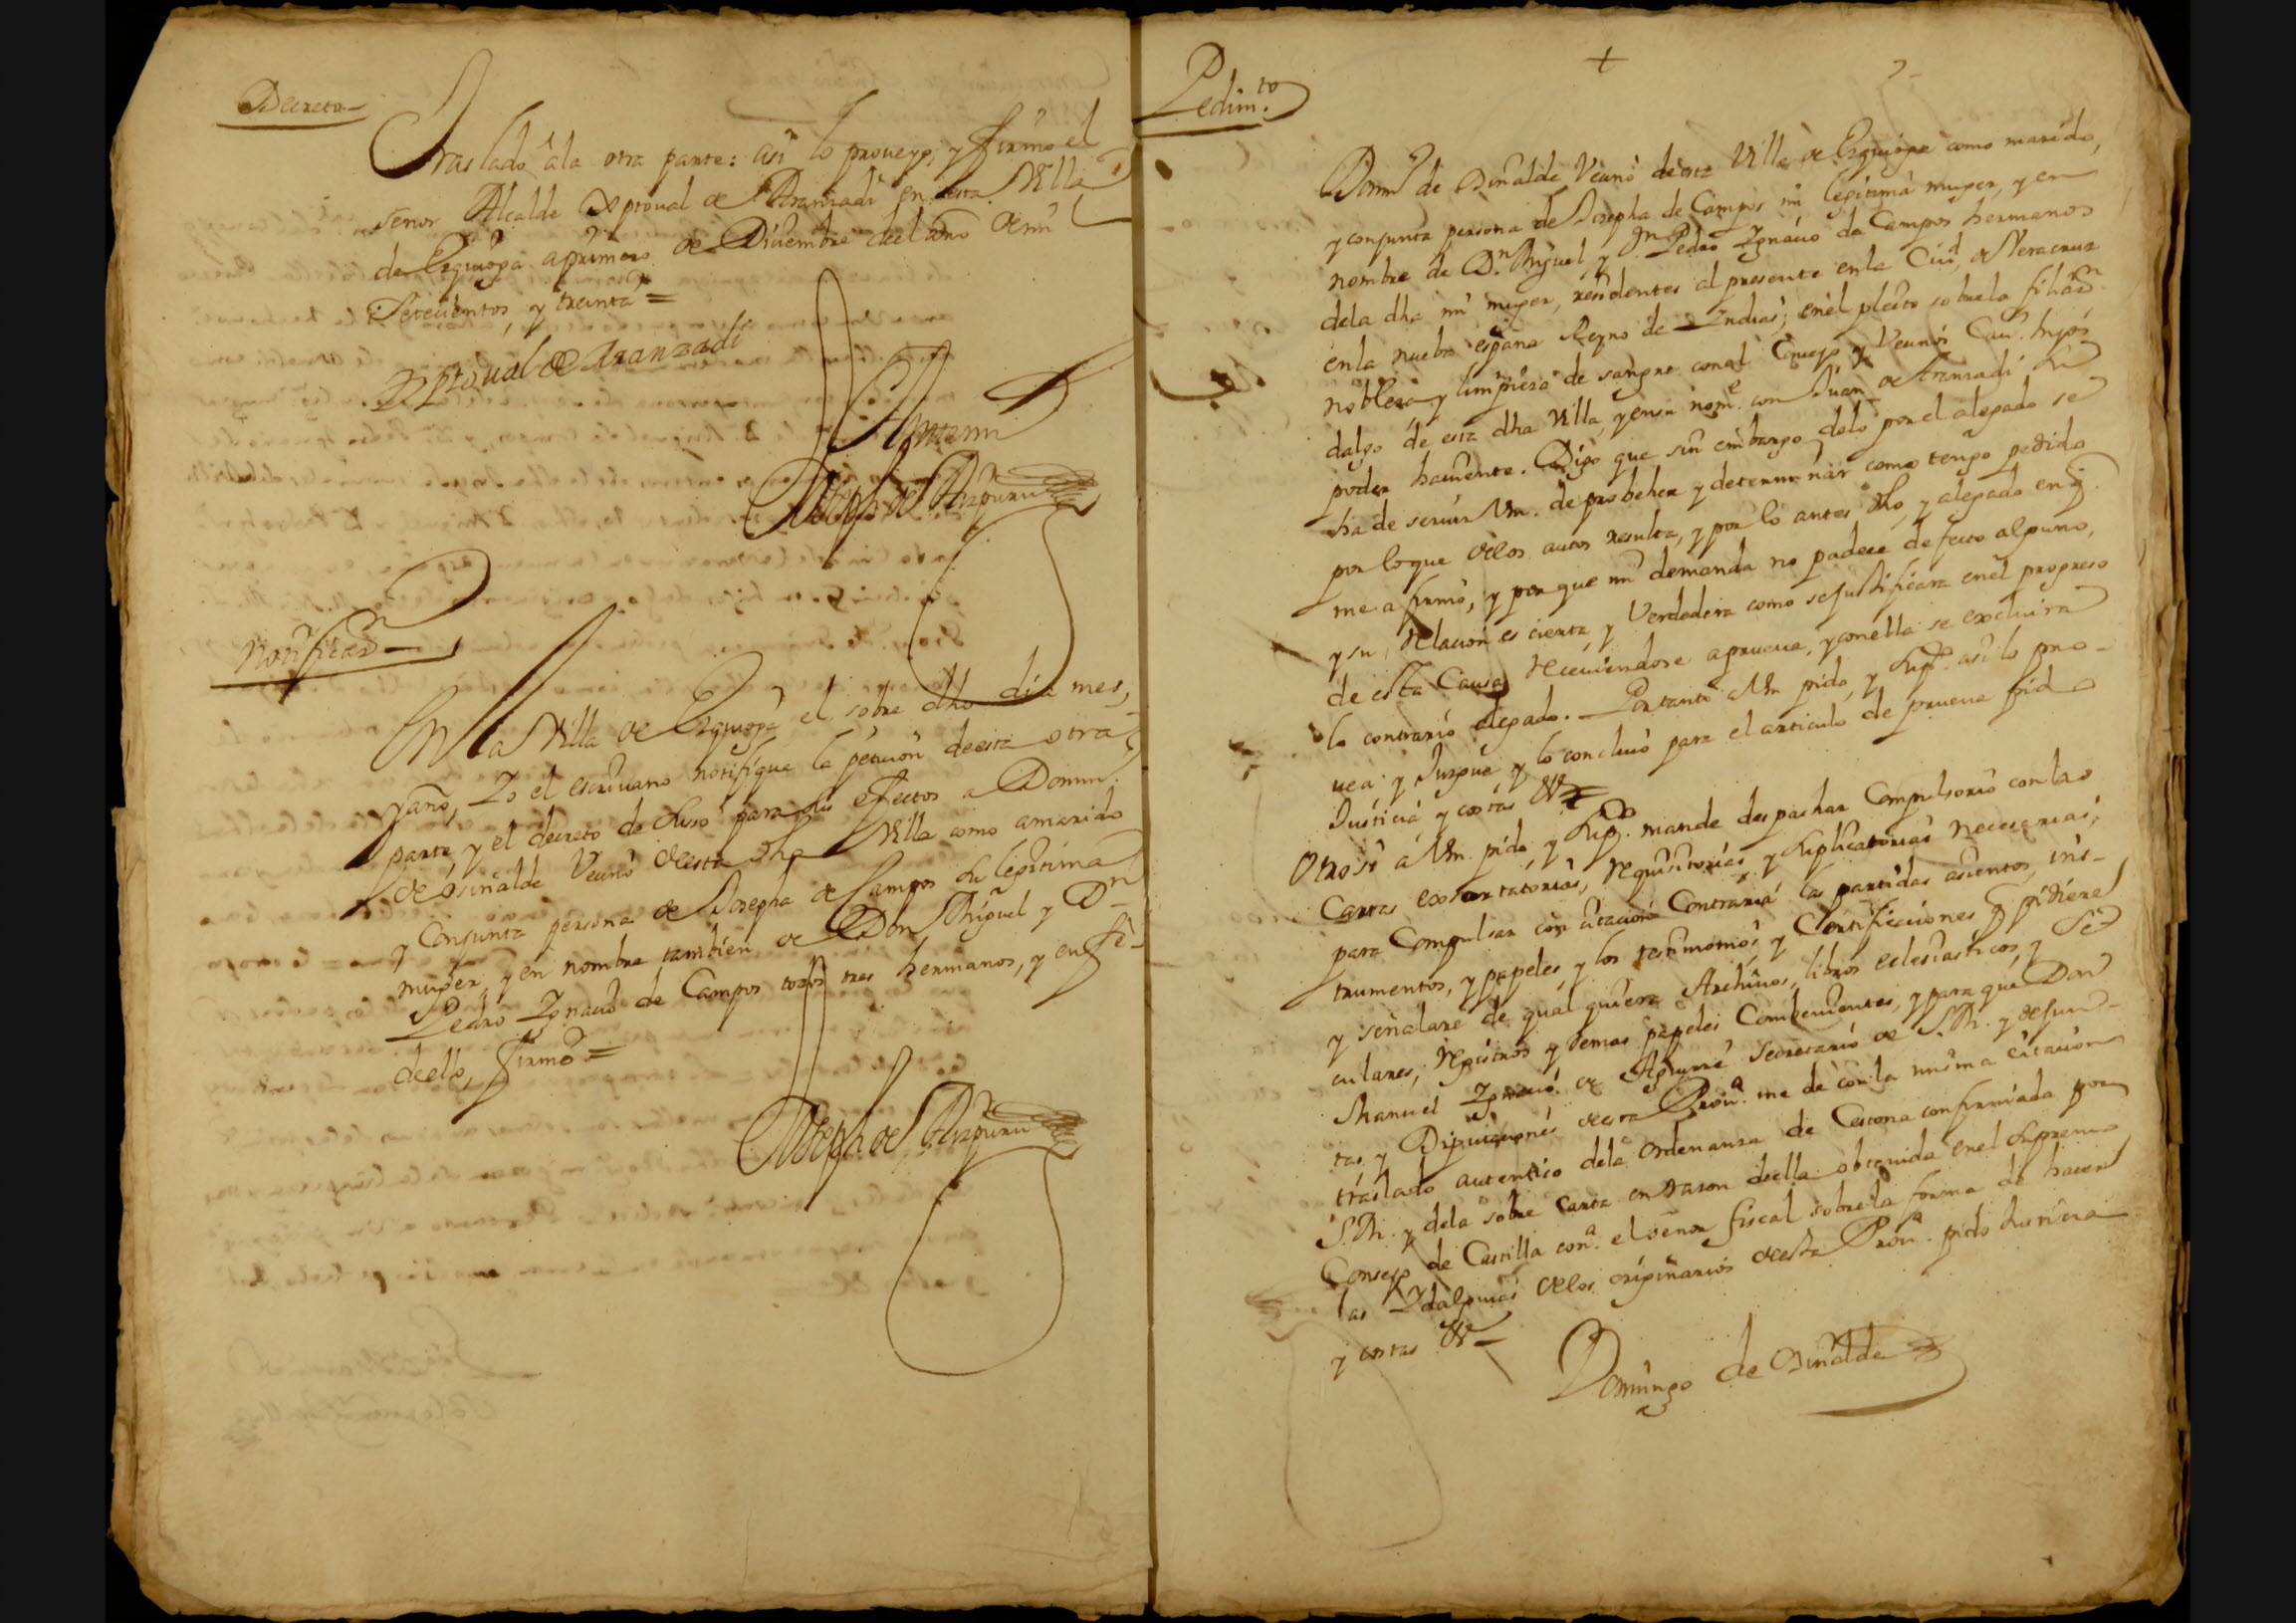 Decreto
Traslado a la otra parte: asi lo proveyo, y firmo el
señor Alcalde Xptoual de Aranzadi en esta Villa
de Ezquioga a primero de Diciembre del año de mil
Setecientos, y treinta =
Xptoual de Aranzadi
Ante mi
Joseph de Aizpuru
Notificaon
En la Villa de Ezquioga el sobre dho dia mes,
y año, Yo el escriuano notifique la peticion de esta otra
parte, y el decreto de suso para sus efectos a Domin.
de osinalde Vecino de esta dha Villa como a marido
y Conjunta persona de Josepha de Campos su legitima
muger, y en nombre tambien de Don Miguel y Dn
Pedro Ygnacio de Campos todos tres hermanos, y en fe
de ello, firmo =
Joseph de Aizpuru
Pedimto
+
Domo de Osinalde Vecino de esta Villa de Ezquioga como marido,
y conjunta persona de Josepha de Campos mi legitima muger, y en
nombre de Dn Miguel y Dn Pedro Ygnacio de Campos hermanos
dela dha mi muger, residentes al presente en la Ciud de Veracruz
en la nueba españa Reyno de Indias; en el pleito sobre la filiaon
nobleza y limpieza de sangre con el Concejo y Vecinos Cau. hijos
dalgo de esta dha Villa, y en su nome con Juan de Aranzadi su
poder hauiente. Digo que sin embargo delo por el alegado se
ha de seruir Vm. de probeher y determinar como tengo pedido
por lo que de los autos resulta, y por lo antes dho, y alegado en q
me afirmo, y por que mi demanda no padece defecto alguno,
y su relacion es cierta, y Verdadera como se justificara en el progreso
de esta Causa reciuiendose a prueua, y con ella se excluira
lo contrario alegado. Por tanto a Vm pido, y supco asi lo pro-
uea y Juzgue y lo concluio para el articulo de prueua pido
Justicia y costas &a =
Otro si a Vm. pido y supco. mande despachar Compulsorio con las
Cartas exsortatorias, requisitorias y suplicatorias necesarias,
para Compulsar con citacion Contraria las partidas asientos, ins-
trumentos, y papeles, y los testimonios, y Certificaciones q pidiere
y señalare de qual quiera Archiuos, libros eclesiasticos, y se
culares, registros y demas papeles Combenientes, y para que Don
Manuel Ygnacio de Aguirre Secretario de S.M. y de Jun-
tas y Diputaciones de esta Prou.a me de con la misma citacion
traslado autentico dela ordenanza de Cestona confirmada por
S.M. y dela sobre Carta en razon de ella obtenida en el supremo
Consejo de Castilla con.a el señor fiscal sobre la forma de hacer
las Ydalguias de los originarios de esta Prou.a pido Justicia
y costas &a =
Domingo de Osinalde